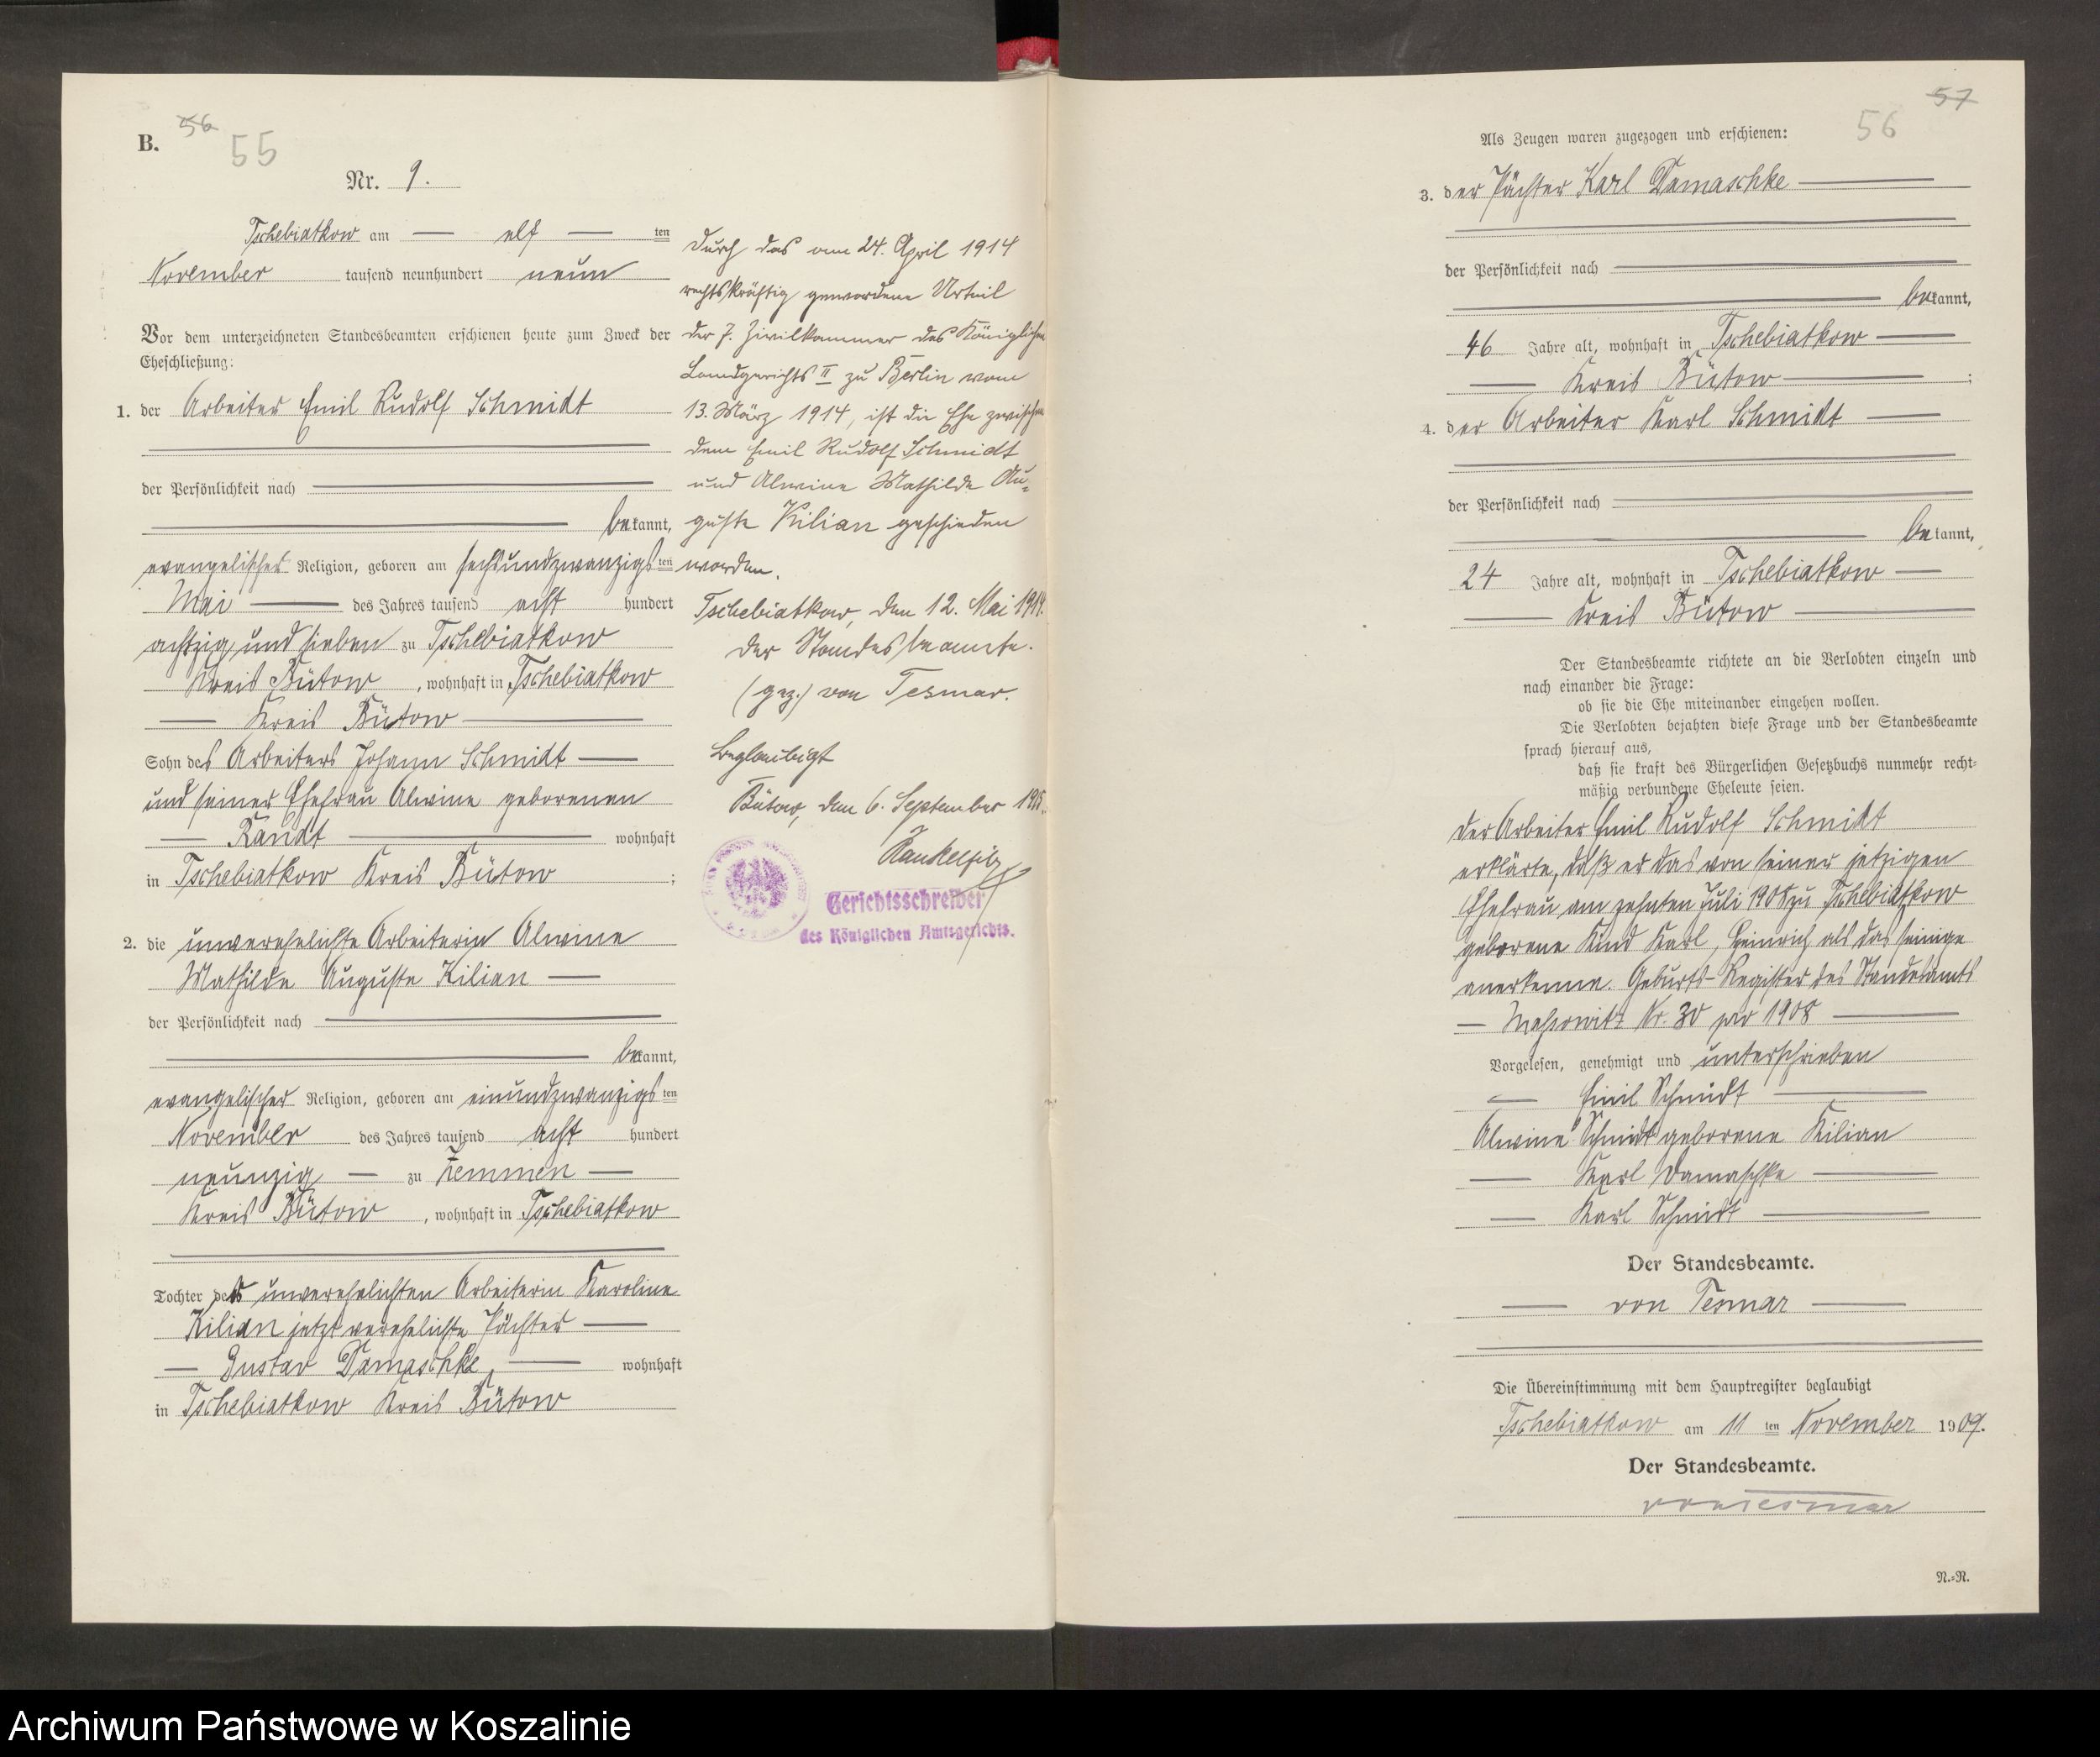 B.
56
55
Nr. 9.
Tschebiatkow am elf ten
November tausend neunhundert neun
Vor dem unterzeichneten Standesbeamten erschienen heute zum Zweck der
Eheschließung:
1. der Arbeiter Emil Rudolf Schmidt
der Persönlichkeit nach
bekannt,
evangelischer Religion, geboren am sechsundzwanzigsten
Mai des Jahres tausend acht hundert
achtzig und sieben zu Tschebiatkow
Kreis Bütow, wohnhaft in Tschebiatkow
Kreis Bütow
Sohn des Arbeiters Johann Schmidt
und seiner Ehefrau Alwine geborenen
Kandt wohnhaft
in Tschebiatkow Kreis Bütow;
2. die unverehelichte Arbeiterin Alwine
Mathilde Auguste Kilian
der Persönlichkeit nach
bekannt,
evangelischer Religion, geboren am einundzwanzigsten
November des Jahres tausend acht hundert
neunzig zu Zemmen
Kreis Bütow, wohnhaft in Tschebiatkow
Tochter der unverehelichten Arbeiterin Karoline
Kilian jetzt verehelichte Pächter
Gustav Damaschke, wohnhaft
in Tschebiatkow Kreis Bütow
Durch das am 24. April 1914
rechtskräftig gewordene Urteil
der 7. Zivilkammer des Königlichen
Landgerichts II zu Berlin vom
13. März 1914, ist die Ehe zwischen
dem Emil Rudolf Schmidt
und Alwine Mathilde Au-
guste Kilian geschieden
worden.
Tschebiatkow, den 12. Mai 1914.
Der Standesbeamte.
(gez.) von Tesmar.
Beglaubigt
Bütow, den 6. September 1915.
Gerichtsschreiber
des Königlichen Amtsgerichts.
57
56
Als Zeugen waren zugezogen und erschienen:
3. der Pächter Karl Damaschke
der Persönlichkeit nach
bekannt,
46 Jahre alt, wohnhaft in Tschebiatkow
Kreis Bütow;
4. der Arbeiter Karl Schmidt
der Persönlichkeit nach
bekannt,
24 Jahre alt, wohnhaft in Tschebiatkow
Kreis Bütow
Der Standesbeamte richtete an die Verlobten einzeln und
nach einander die Frage:
ob sie die Ehe miteinander eingehen wollen.
Die Verlobten bejahten diese Frage und der Standesbeamte
sprach hierauf aus,
daß sie kraft des Bürgerlichen Gesetzbuchs nunmehr recht-
mäßig verbundene Eheleute seien.
Der Arbeiter Emil Rudolf Schmidt
erklärte, daß er das von seiner jetzigen
Ehefrau am zehnten Juli 1908 zu Tschebiatkow
geborene Kind Karl, Heinrich als das seinige
anerkenne. Geburts-Register des Standesamts
Massowitz Nr. 30 pro 1908
Vorgelesen, genehmigt und unterschrieben
Emil Schmidt
Alwine Schmidt geborene Kilian
Karl Damaschke
Karl Schmidt
Der Standesbeamte.
von Tesmar
Die Übereinstimmung mit dem Hauptregister beglaubigt
Tschebiatkow am 11 ten November 1909.
Der Standesbeamte.
von Tesmar
N.-N.
Archiwum Państwowe w Koszalinie